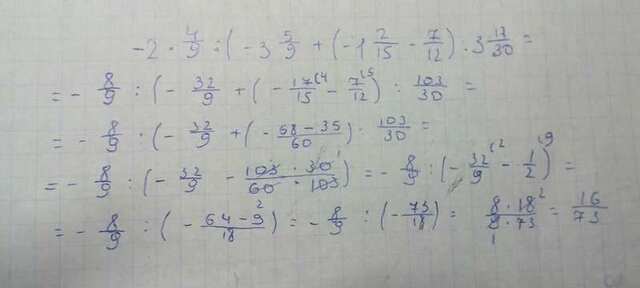 -2 · 4/9 : (-3 5/9 + (-1 2/15 - 7/12) : 3 13/30 =
= - 8/9 : (- 32/9 + (- 17/15 (4 - 7/12 (5) : 103/30 =
= - 8/9 : (- 32/9 + (- 68-35/60) · 103/30 =
= - 8/9 : (- 32/9 - 103 · 30 1/60 · 103) = - 8/9 : (- 32/9 (2 - 1/2 (9) =
= - 8/9 : (- 64-9/18) 2 = - 8/9 : (- 73/18) = 8 · 18 2/9 · 73 1 = 16/73